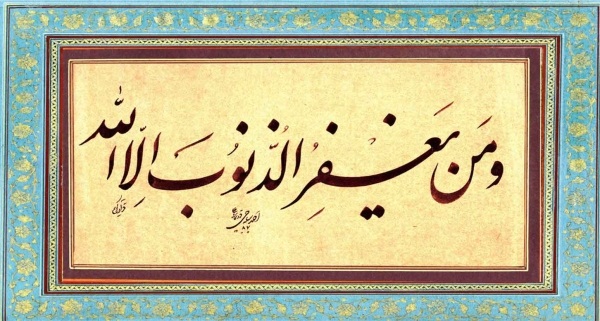 وَمَن یَغفِرُ الذُّنُوبَ اِلّا الله